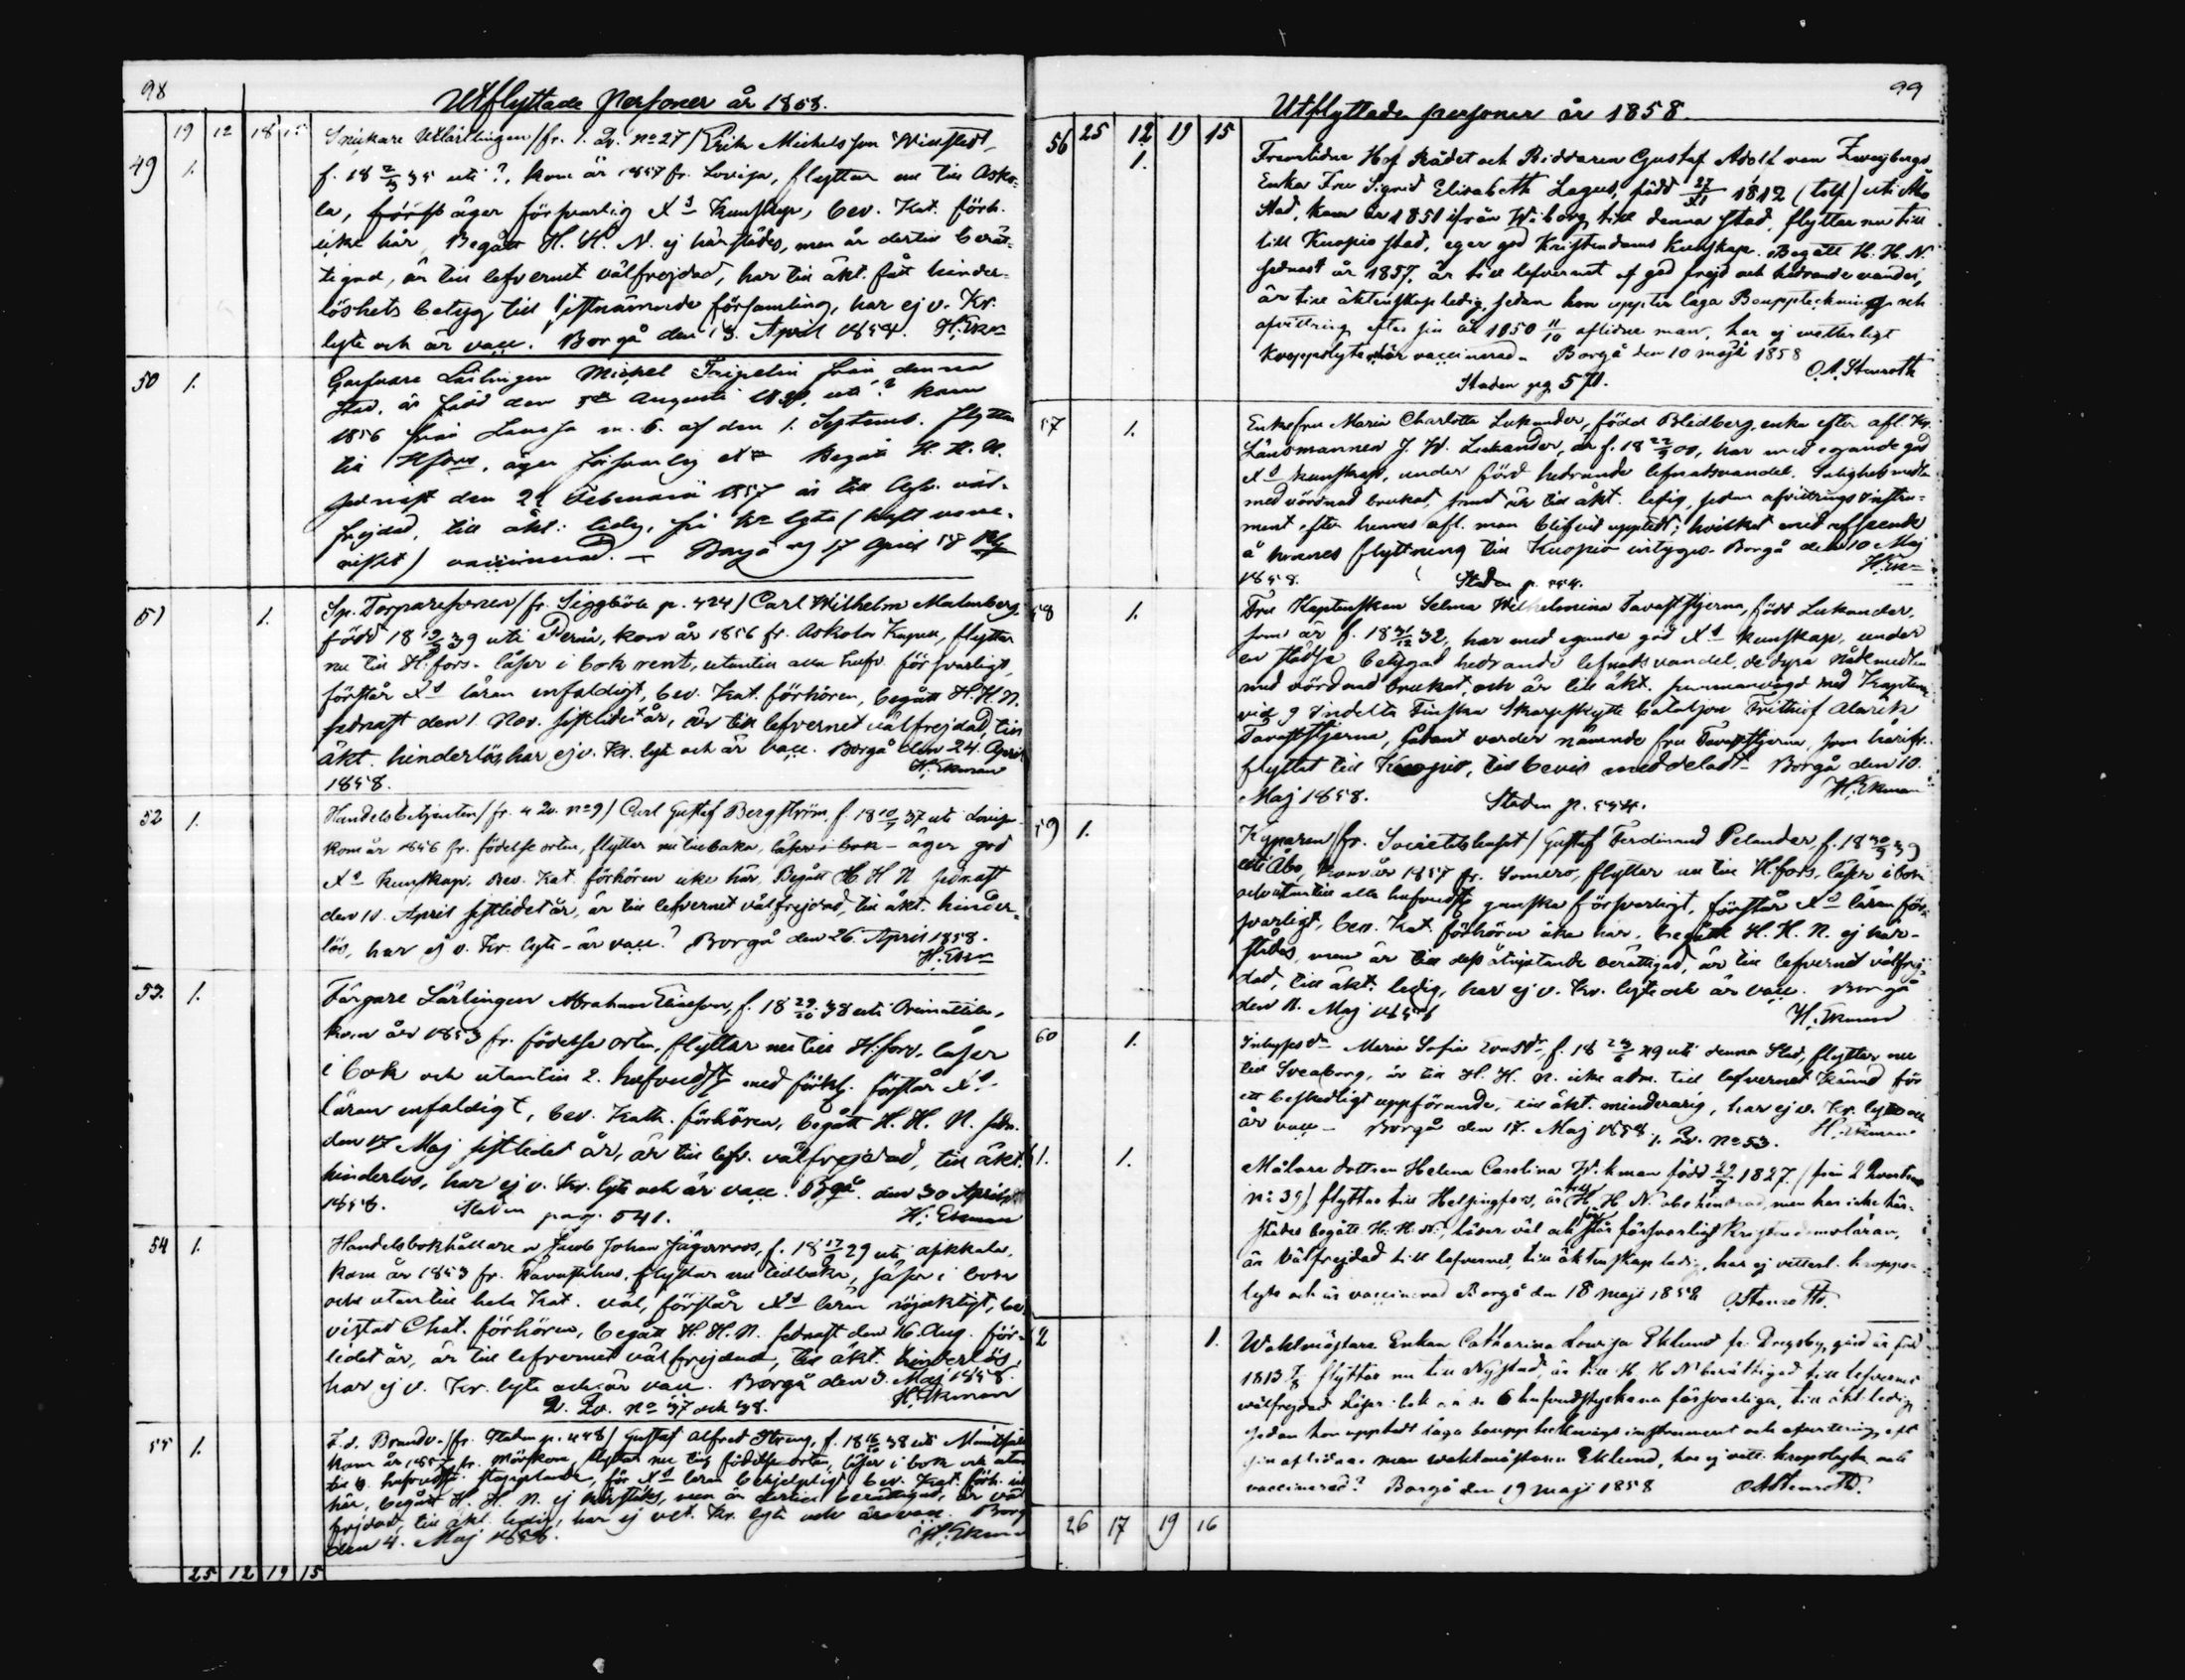 98
Utflyttade Personer år 1858.
19 12 18 15
49 1. Snickare Utlärlingen (fr. 1. Qv. No 27) Erik Michelsson Winstedt,
f. 18 35 uti ?, kom år 1857 fr. Lovisa, flyttar nu till Asko-
la, äger försvarlig Xs Kunskap, bev. Kat. förh.
icke här, Begått H. H. N. ej härstädes, men är dertill berät-
tigad, är till lefvernet välfrejdad, har till äkt. fått hinder-
löshets betyg till sistnämnde församling, har ej v. Kr.
lyte och är vacc. Borgå den 13. April 1858. H. Ekm
50 1. Garfvare Lärlingen Michel Tripelin från denna
stad, är född den 5te Augusti uti ? kom
1856 från m. b. af den 1. Septemb. flyttar
till Hfors, äger försvarlig Begått H. H. N.
sednast den 22 Februarii 1857 är till lefv. väl-
frejdad, till äkt: ledig, fri Kr lyte (haft
) vaccinerad. — Borgå 17 April 58
51 1. Sp. Torparesonen (fr. Siggböle p. 424) Carl Wilhelm Malmberg,
född 18 39 uti Pernå, kom år 1856 fr. Askola Kapell, flyttar
nu till H:fors. läser i bok rent, utantill alla hufv. försvarligt,
förstår Xs läran enfaldigt, bev. Kat. förhören, begått H. H. N.
sednast den 1. Nov. sistlidet år, är till lefvernet välfrejdad, till
äkt. hinderlös, har ej v. Kr. lyte och är vacc. Borgå den 24. April
1858. H. Ekman
52 1. Handelsbetjenten (fr. 4 Qv. No 9) Carl Gustaf Bergström, f. 18 37 uti Lovisa
kom år 1856 fr. födelseorten, flyttar nu tillbaka, läser i bok – äger god
Xs Kunskap. Bev. Kat. förhören icke här, Begått H H N sednast
den 10. April sistlidet år, är till lefvernet välfrejdad, till äkt. hinder-
lös, har ej v. Kr. lyte – är vacc.? Borgå den 26. April 1858.
H. Ekm
53. 1. Färgare Lärlingen Abraham Eliasson, f. 18 38 uti Orimattila,
kom år 1853 fr. födelseorten, flyttar nu till H:fors, läser
i bok och utantill 2. hufvudst. med förkl. förstår Xs
läran enfaldigt, bev. Kath. förhören, begått H. H. N. sedn.
den 17 Maj sistledet år, är till lefv. välfrejdad, till äkt.
hinderlös, har ej v. Kr. lyte och är vacc. Bgå. den 30 April
1858. Staden pag. 541. H. Ekman
54 1. Handelsbokhållare Jacob Johan Jägerroos, f. 18 29 uti
kom år 1853 fr. Tavastehus, flyttar nu tillbaka, läser i bok
och utantill hela Kat. väl, förstår Xs läran nöjaktigt, be-
vistat Chat. förhören, begått H. H. N. sednast den 16. Aug. för-
ledet år, är till lefvernet välfrejdad, till äkt. hinderlös,
har ej v. Kr. lyte och är vacc. Borgå den 3. Maj 1858.
2. Qv. No 37 och 38. H. Ekman
55 1. F. d. Brandv. (fr. Staden p. 448) Gustaf Alfred Streng, f. 18 38 uti
kom år 1857 fr. Mörskom, flyttar nu till födelseorten, läser i bok och utan
till 6. hufvudst. , för Xs läran behjelpligt bev. Kat. förh.
här, begått H. H. N. ej härstädes, men är dertill berättigad, är väl
frejdad, till äkt. ledig, har ej vet. Kr. lyte och är vacc. Borg
den 4. Maj 1858. H. Ekman
25 12 19 15
99
Utflyttade personer år 1858.
25 12 19 15
56 1. Framlidne Hof Rådet och Riddaren Gustaf Adolf von Zweigbergs
Enka Fru Sigrid Elisabeth Lagus, född 27/XI 1812 (tolf) uti Åbo
Stad, kom år 1851 ifrån Wiborg till denna stad, flyttar nu till
till Kuopio stad, eger god Kristendoms Kunskap. Begått H. H. N.
sednast år 1857, är till lefvernet af god frejd och hedrande vandel,
är till äktenskap ledig, sedan hon upptett laga Bouppteckning och
afvittring efter sin år 1850 11/10 aflidne man, har ej vetterligt
kroppslyte och är vaccinerad. Borgå den 10 majii 1858
Staden pg 571. O. A. Stenroth
57 1. Enkefru Maria Charlotta Lukander, född Blidberg, enka efter afl. Kr.
Länsmannen J. W. Lukander, är f. 18 00, har med egande god
Xs kunskap, under förd hedrande lefnadsvandel, Salighets medlen
med vördnad brukat, samt är till äkt. ledig, sedan afvittrings Instru-
ment efter hennes afl. man blifvit upptedt; hvilket med afseende
å hennes flyttning till Kuopio intygas. Borgå den 10 Maj
1858. Staden p. 554. H. Ekm
58 1. Fru Kaptenskan Selma Wilhelmina Tavaststjerna, född Lukander,
som är f. 18 31/12 32, har med egande god Xs kunskap, under
en städse betygad hedrande lefnadsvandel, de dyra Nådemedlen
med vördnad brukat, och är till äkt. sammanvigd med Kapten
vid 9 Indelta Finska Skarpskytte bataljon Frithiof Alarik
Tavaststjerna, sådant varder nämnde fru Tavaststjerna, som härifr.
flyttat till Kuopio, till bevis meddeladt. Borgå den 10.
Maj 1858. Staden p. 554. H. Ekman
59 1. Kyparen (fr. Societetshuset) Gustaf Ferdinand Pelander, f. 18 39
uti Åbo, kom år 1857 fr. Somero, flyttar nu till H.fors, läser i bok
och utantill alla hufvudst. ganska försvarligt, förstår Xs läran för-
svarligt, bev. Kat. förhören icke här, begått H. H. N. ej här-
städes, men är till dess åtnjutande berättigad, är till lefvernet välfrej-
dad, till äkt. ledig, har ej v. Kr. lyte och är vacc. Borgå
den 11. Maj 1858 H. Ekman
60 1. Inhyses dr Maria Sofia , f. 18 49 uti denna Stad, flyttar nu
till Sveaborg, är till H. H. N. icke adm. till lefvernet känd för
ett beskedligt uppförande, till äkt. minderårig, har ej v. Kr. lyte och
är vacc – Borgå den 17. Maj 1858. 1. Qv. No 53. H. Ekman
61. 1. Målare dottren Helena Carolina Wikman född 1827. (från 2 Qvarteret
No 39) flyttar till Helsingfors, är till H. H. N. obehindrad, men har icke här-
städes begått H. H. N., läser väl och förstår försvarligt Kristendomsläran,
är välfrejdad till lefvernet, till äktenskap ledig, har ej vetterl. kropps-
lyte och är vaccinerad Borgå den 18 maji 1858 OStenroth.
62 1. Waktmästare Enkan Catharina Lowisa Eklund fr. Drägsby gård är född
1813 flyttar nu till Nystad, är till H. H N berättigad till lefvernet
välfrejdad läser i bok 6 hufvudstyckena försvarliga, till äkt. ledig
sedan hon upptedt laga bouppteckningsinstrument och afvittring, eft
sin aflidne man waktmästaren Eklund, har ej vett. kroppslyte och
vaccinerad? Borgå den 19 maji 1858 OAStenroth.
26 17 19 16